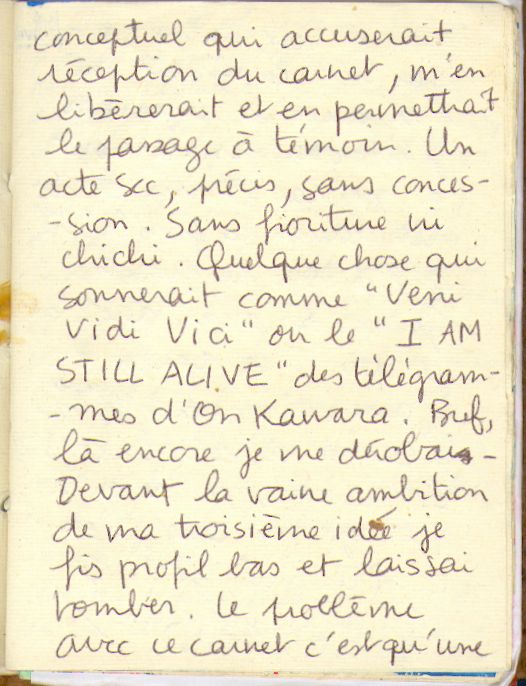 conceptuel qui accuserait
réception du carnet, m'en
libèrerait et en permettrait
le passage à témoin. Un
acte sec, précis, sans conces-
-sion. Sans fioriture ni
chichi. Quelque chose qui
sonnerait comme "Veni
Vidi Vici" ou le "I AM
STILL ALIVE" des télégram-
-mes d'On Kawara. Bref,
là encore je me dérobais-
Devant la vaine ambition
de ma troisième idée je
fis profil bas et laissai
tomber. Le problème
avec ce carnet c'est qu'une